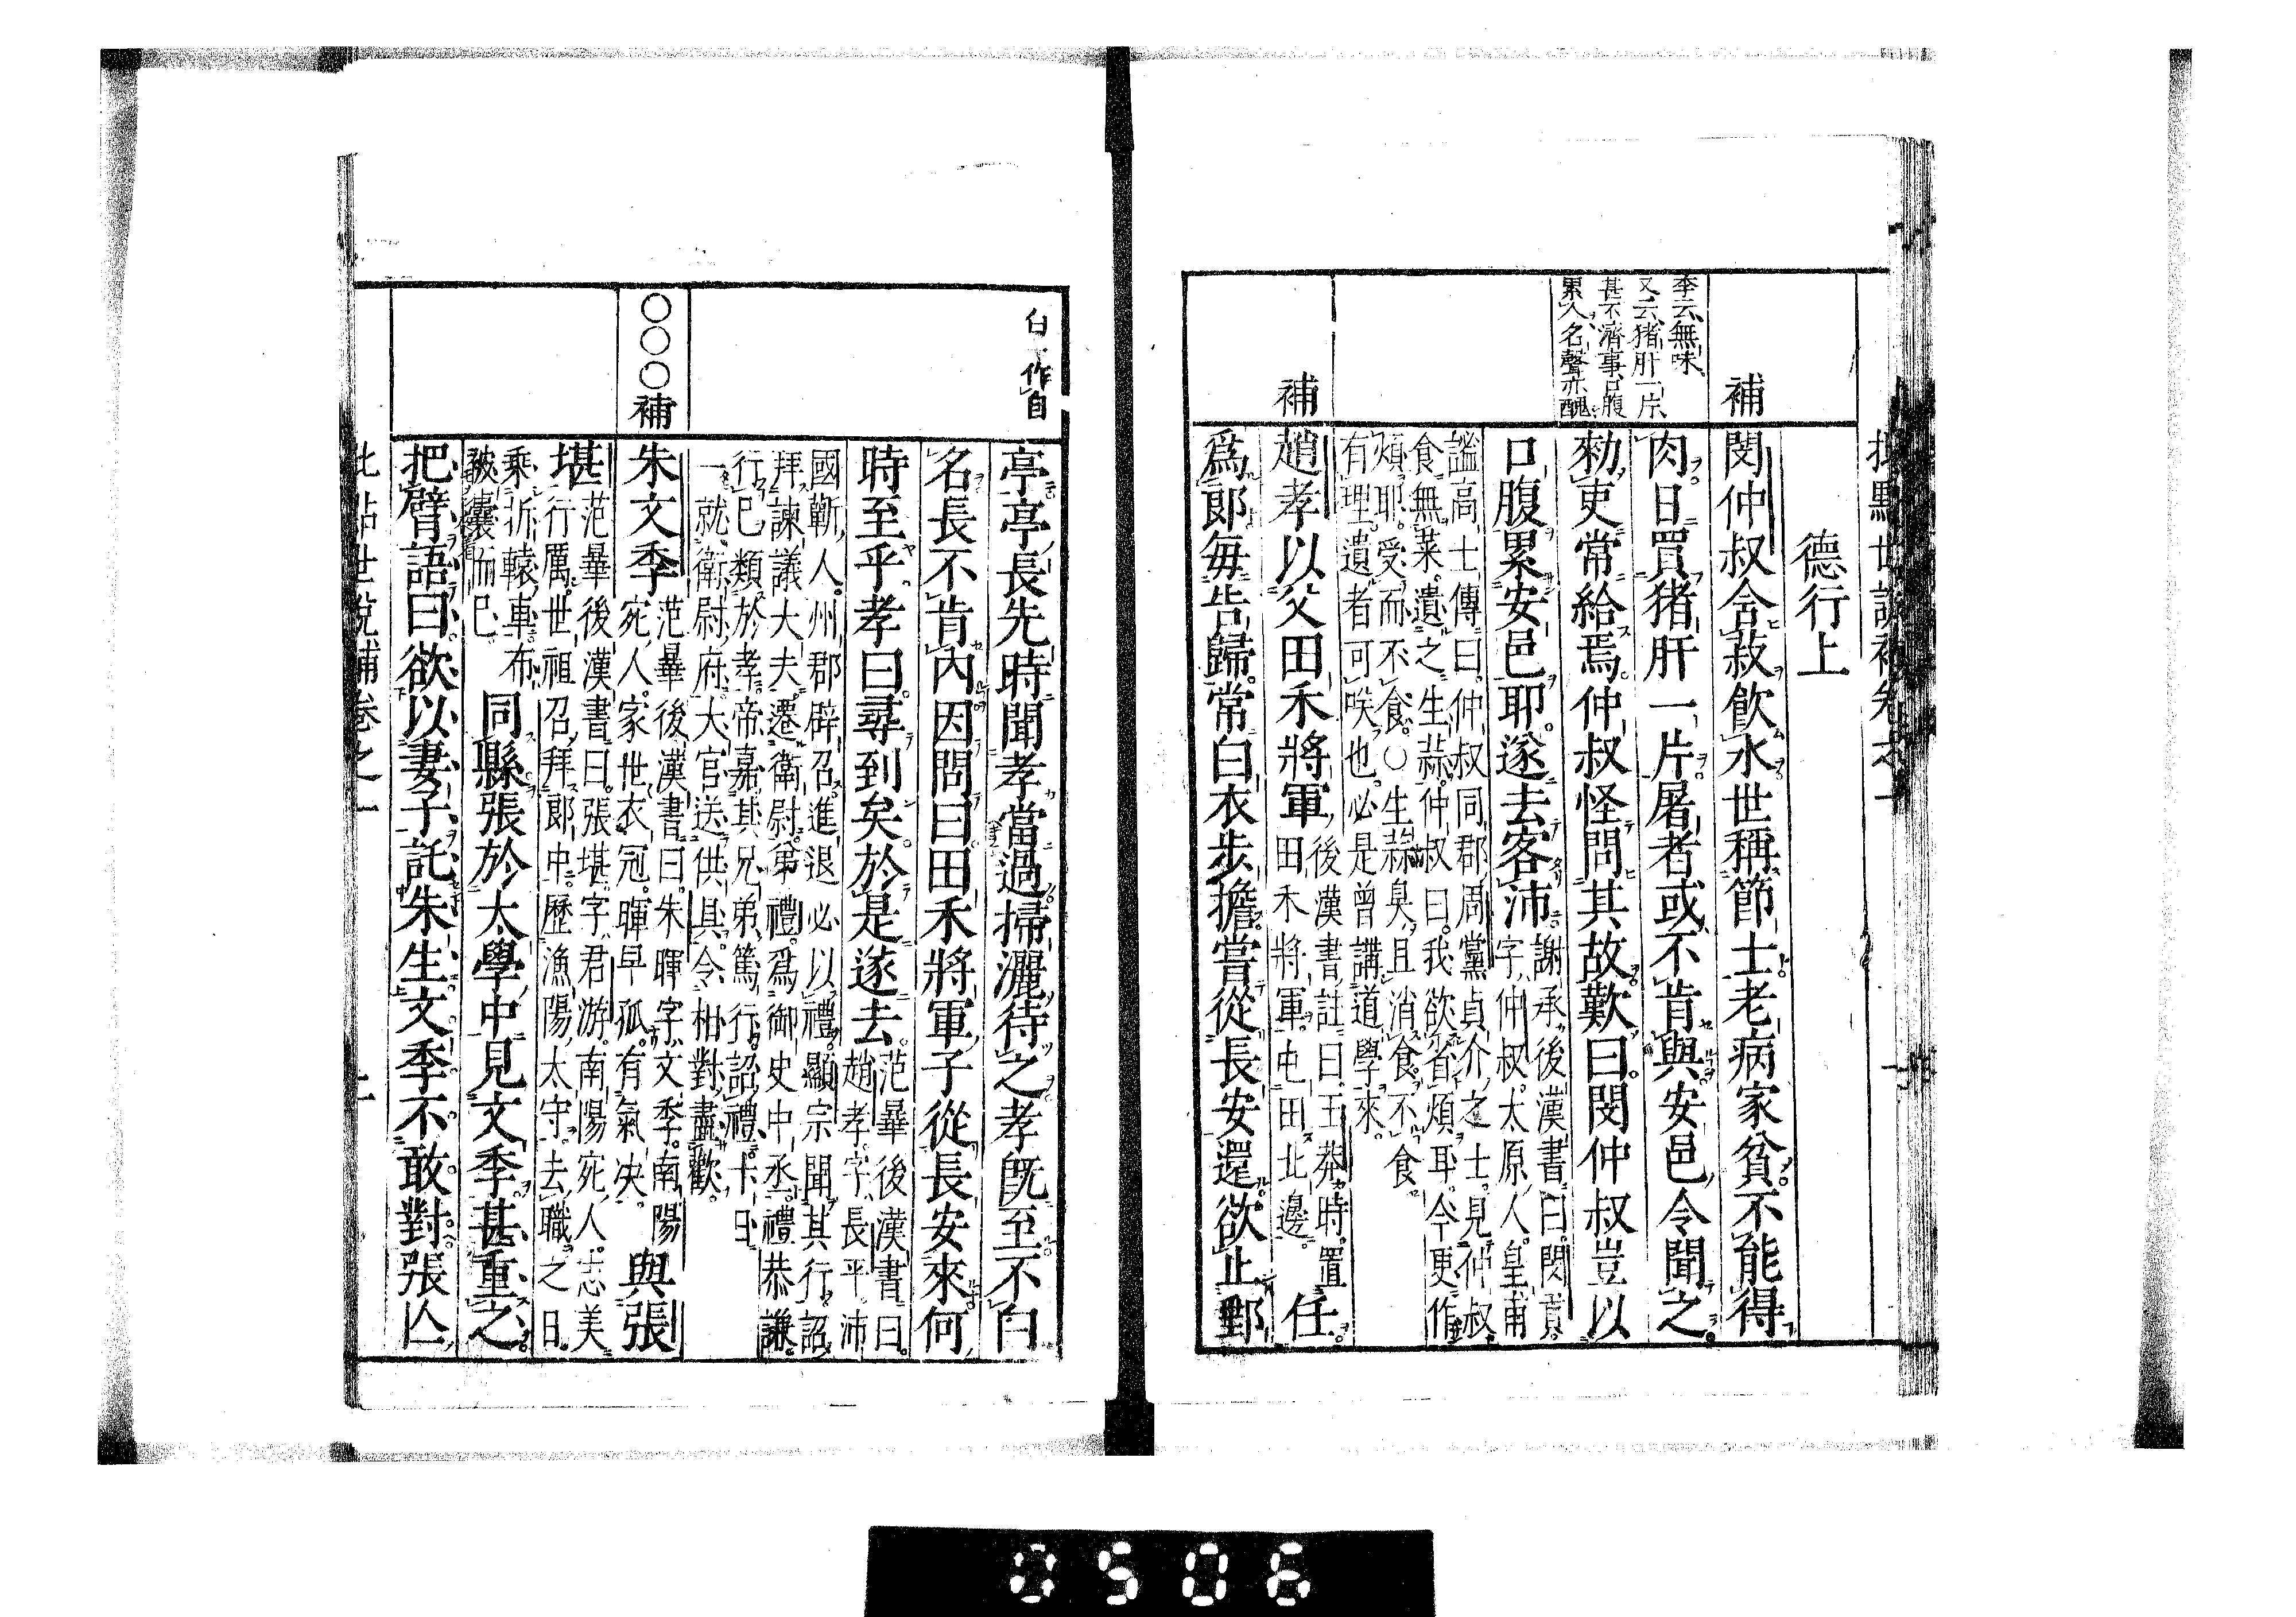 批點世說補卷之一
德行上
補
閔仲叔含菽飲水世稱節士老病家貧不能得
肉日買猪肝一片屠者或不肯與安邑令聞之
李云無味
又云猪肝一片
甚不濟事口腹
累人名聲亦醜
勑吏常給焉仲叔怪問其故歎曰閔仲叔豈以
口腹累安邑耶遂去客沛
謝承後漢書曰閔貢
字仲叔太原人皇甫
謐高士傳曰仲叔同郡周黨貞介之士見仲叔
食無菜遺之生蒜仲叔曰我欲省煩耳今更作
煩耶受而不食○生蒜臭且消食不食
有理遺者可唉也必是曾講道學來
補
趙孝以父田禾將軍
後漢書註曰王莽時置
田禾將軍屯田北邊
任
爲郎每告歸常白衣步擔嘗從長安還欲止郵
白一作自
亭亭長先時聞孝當過掃灑待之孝既至不白
名長不肯內因問曰田禾將軍子從長安來何
時至乎孝曰尋到矣於是遂去
范曄後漢書曰
趙孝字長平沛
國蘄人州郡辟召進退必以禮顯宗聞其行詔
拜諫議大夫遷衛尉弟禮爲御史中丞禮恭謙
行已類於孝帝嘉其兄弟篤行詔禮十日
一就衛尉府太官送供具令相對盡歡
○○○補
朱文季
范曄後漢書曰朱暉字文季南陽
宛人家世衣冠暉早孤有氣决
與張
堪
范曄後漢書曰張堪字君游南陽宛人志美
行厲世祖召拜郎中歷漁陽太守去職之日
乘折轅車布
被囊而已
同縣張於太學中見文季甚重之
把臂語曰欲以妻子託朱生文季不敢對張亾
批點世說補卷之一